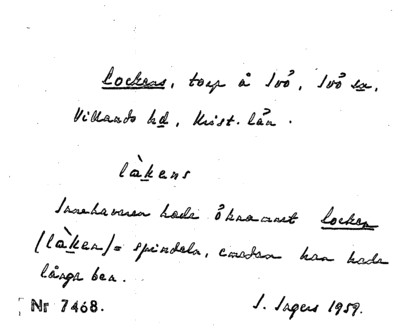 Lockens, torp å Ivö, Ivö sn,
Villands hd, Krist. län.
làkens
Innehavaren hade öknamnet Locken
(làken) = spindeln, emedan han hade
långa ben.
Nr 7468. I. Ingers 1959.